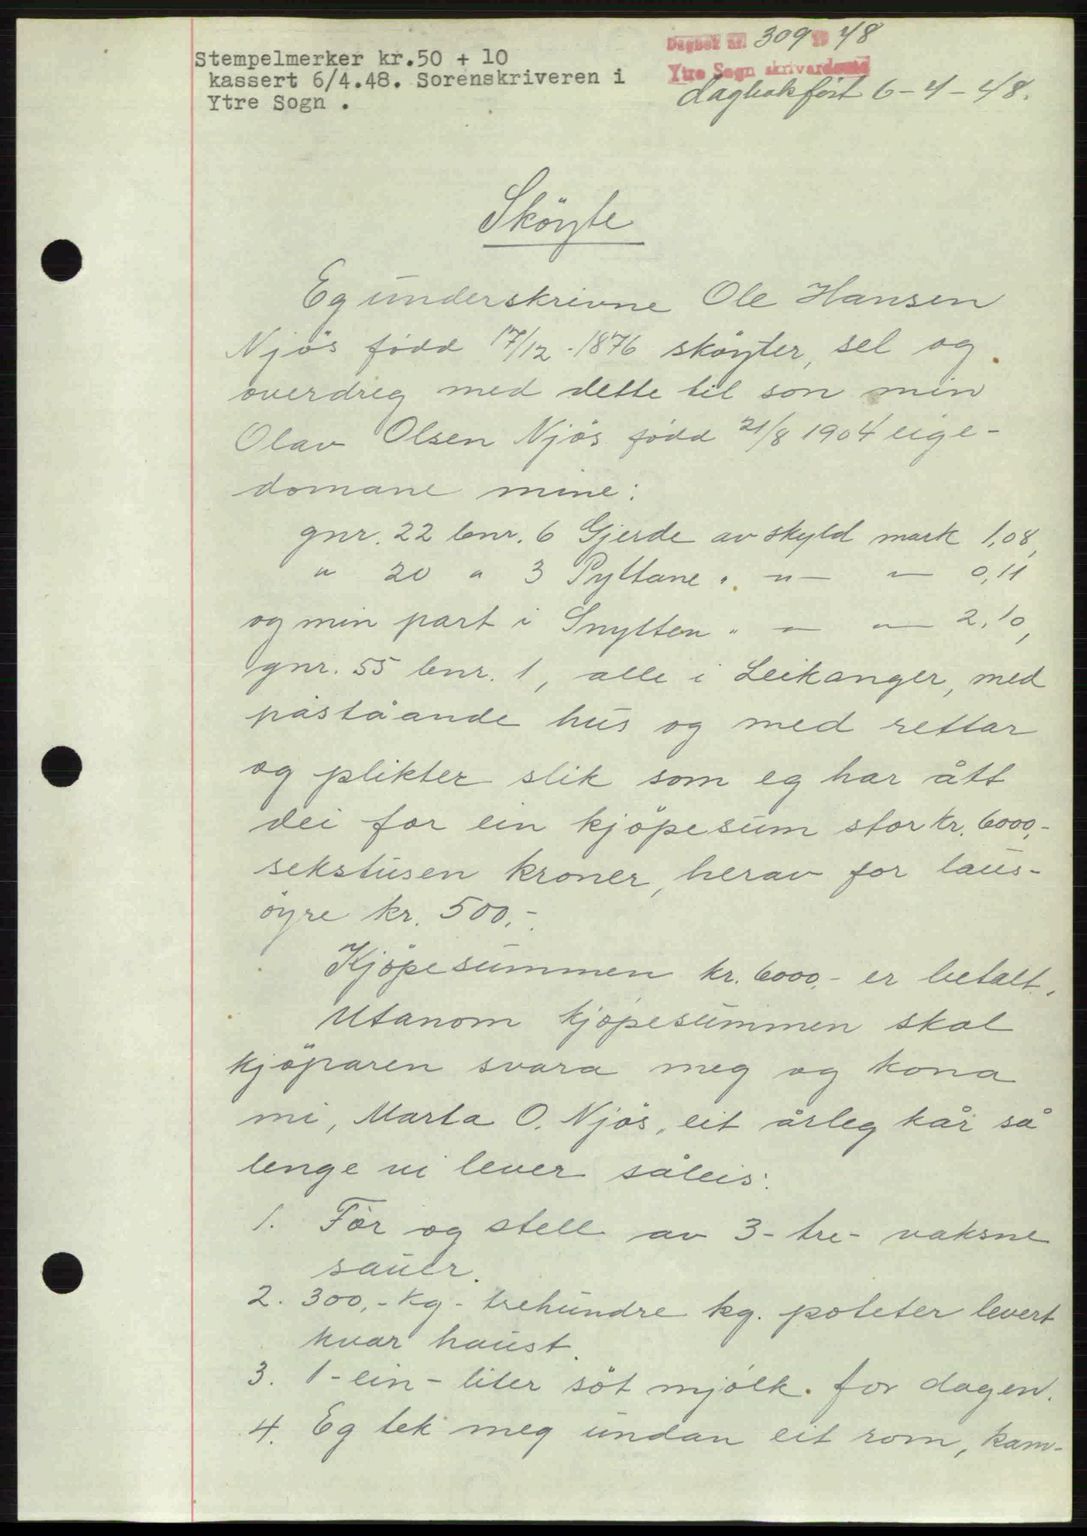 Stempelmerker kr.50 + 10
kassert 6/4.48. Sorenskriveren i
Ytre Sogn .
Dagbok nr. 309 19 48
Ytre Sogn skrivardøme
dagbokført 6-4-48.
Sköyte
Eg underskrivne Ole Hansen
Njös född 17/12-1876 sköyter, sel og
overdreg med dette til son min
Olav Olsen Njös född 21/8 1904 eige-
domane mine:
gnr. 22 bnr. 6 Gjerde av skyld mark 1,08,
" 20 " 3 Pyttane " -"- -"- 0,11
og min part i Snytten " -"- -"- 2,10,
gnr. 55 bnr. 1, alle i Leikanger, med
påståande hus og med rettar
og plikter slik som eg har ått
dei for ein kjöpesum stor kr. 6000,-
sekstusen kroner, herav for laus-
öyre kr. 500,-.
Kjöpesummen kr. 6000,- er betalt.
Utanom kjöpesummen skal
kjöparen svara meg og kona
mi, Marta O. Njös, eit årleg kår så
lenge vi lever såleis:
1. För og stell av 3-tre- vaksne
sauer.
2. 300,-kg- trehundre kg. poteter levert
kvar haust.
3. 1-ein-liter söt mjölk. for dagen.
4. Eg tek meg undan eit rom, kam-